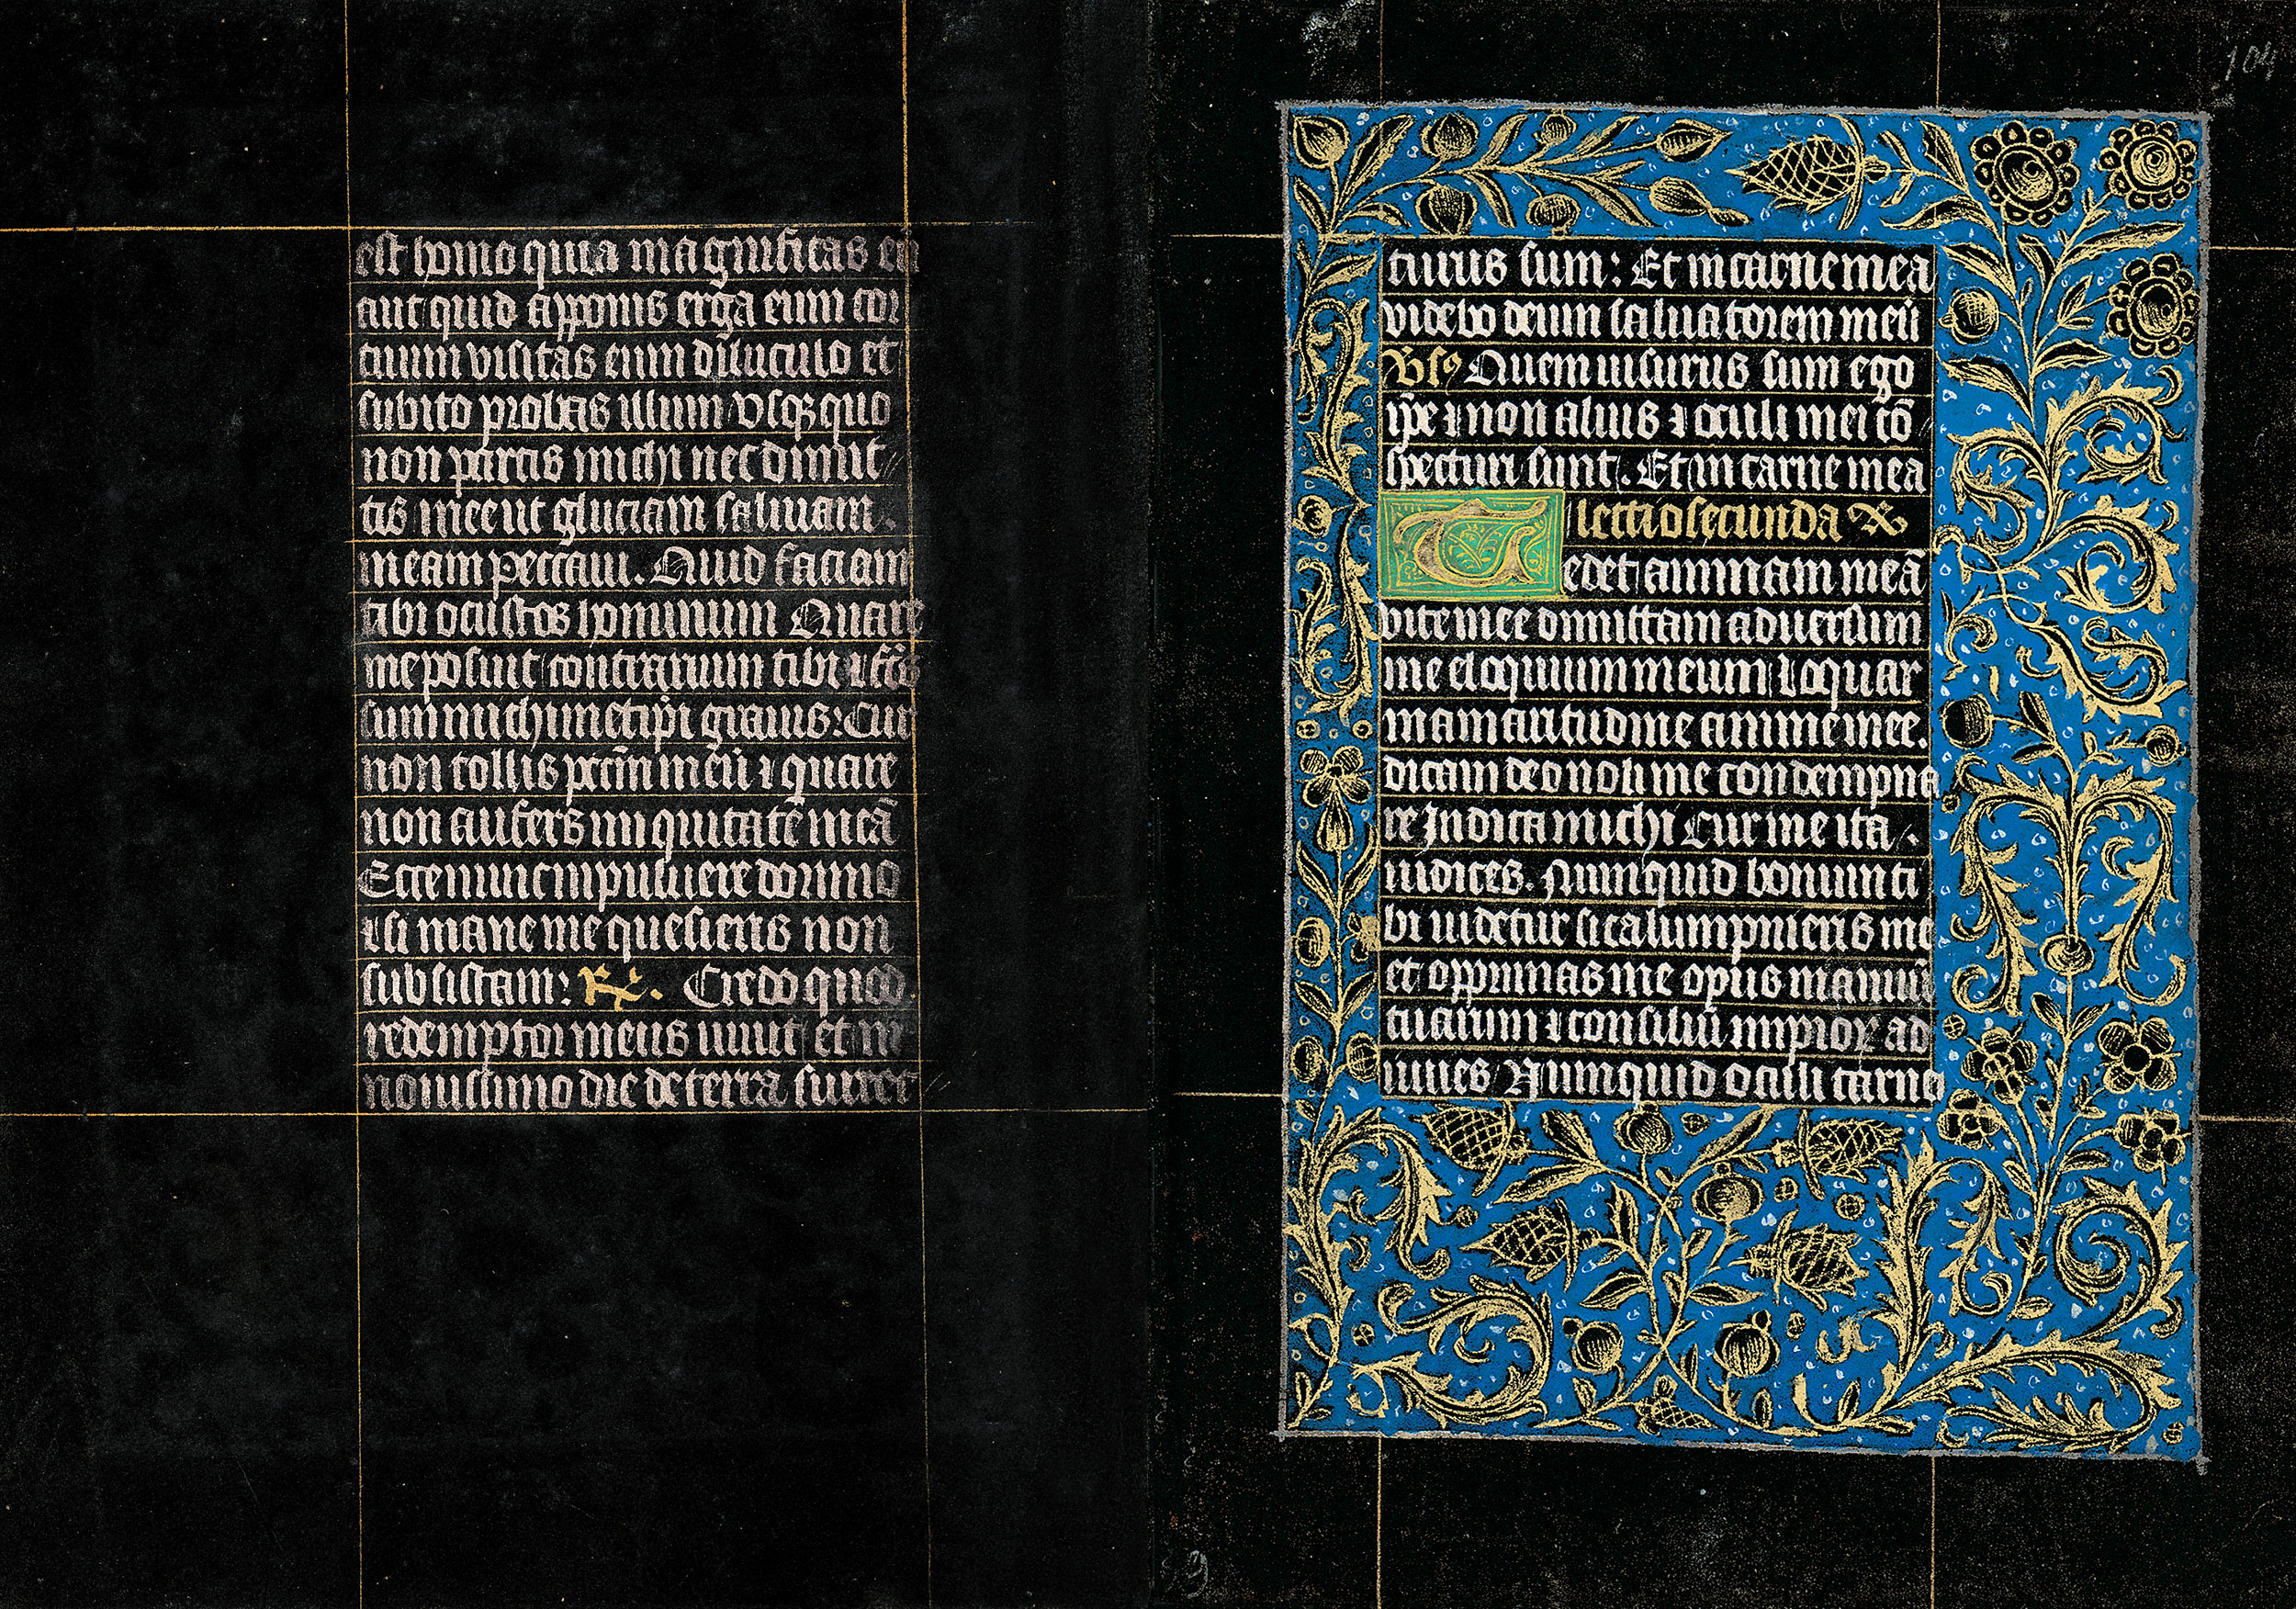 est homo quia magnificas eū
aut quid apponis erga eum cor
tuum visitas eum diluculo et
subito probas illum vsqꝫ quo
non parcis michi nec dimit
tis me ut glutiam saliuam
meam peccaui. Quid faciam
tibi o custos hominum Quare
me posuit contrarium tibi ⁊ fc̄s
sum michimetip̄i grauis: Cur
non tollis pctm̄ meū ⁊ quare
non aufers iniquitatē meā
Ecce nunc in puluere dormio
⁊ si mane me quesieris non
subsistam: ℟. Credo quod
redemptor meus uiuit et in
nouissimo die de terra surrec
104
turus sum: Et in carne mea
videbo deum saluatorem meū
Vsꝰ Quem uisurus sum ego
ip̄e ⁊ non alius ⁊ oculi mei cō
specturi sunt. Et in carne mea
lectio secunda
Tedet animam meā
vite mee dimittam aduersum
me eloquium meum loquar
in amaritudine anime mee.
dicam deo noli me condempna
re Indica michi Cur me ita
iudices. Numquid bonum ti
bi uidetur si calumpnieris me
et opprimas me opus manuū
tuarum ⁊ consiliū impioꝝ ad
iuues Numquid oculi carne
9